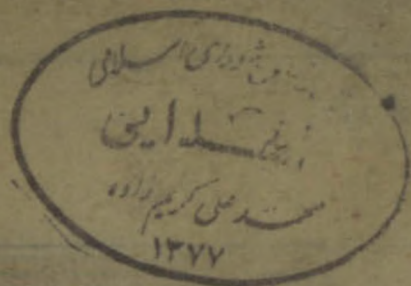 شورای اسلامی
اهدایی
محمد علی کریم زاده
۱۳۷۷